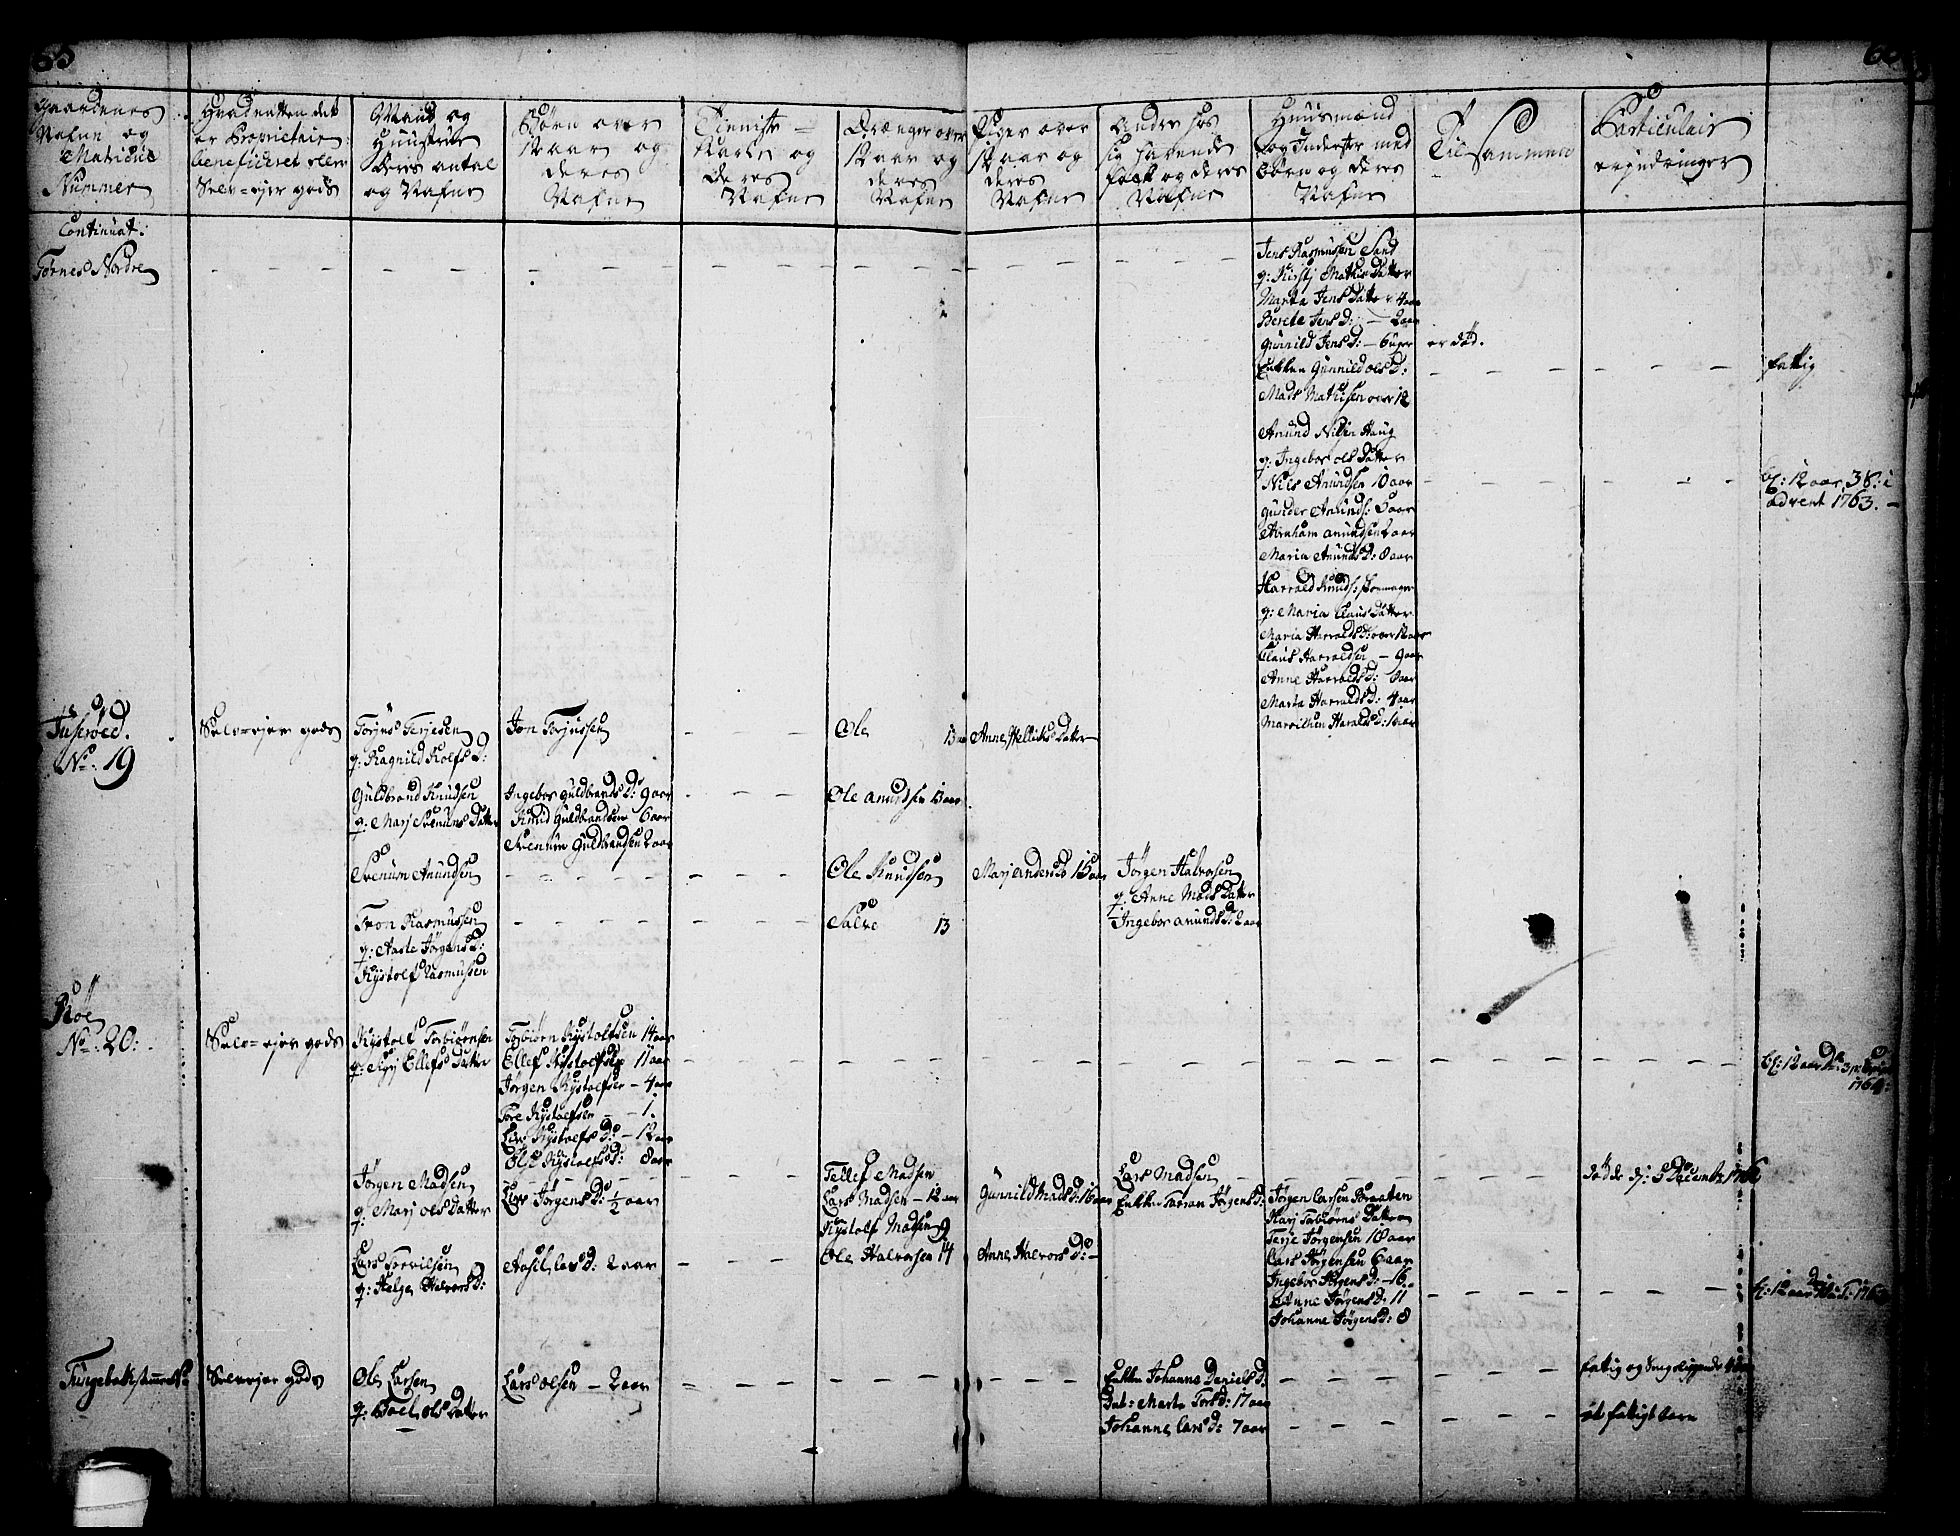 65
Gaardenes
Nafne og
Matricul
Nummer
Hvad netten det
er Proprietair
beneficeret eller
Selv=ejer gods
Mand og
Huustrue
deres antal
og Nafne
Børn over
12 aar og
deres
Nafne
Tienniste=
Karle og
deres
Nafne
Drænger over
12 aar og
deres
Nafne
Piger over
12 aar og
deres
Nafne
Andre hos
sig havende
folk og deres
Nafne
Huusmænd
og Inderster med
børn og deres
Nafne
Tilsammen
Particulair
erindringer
Continuat:
Tornes Nordre
Jens Rasmussen Sand
q: Kirsti Mathis Datter
Marta Jens Datter 4 aar
Berete Jens D: — 2 aar
Gunnild Jens D: — 6 uger er død.
Enken Gunnild Ols D: fattig
Mads Mathisen over 12
Anund Nilsen Haug
q: Ingebor Ols Datter
Nils Anundsen 10 aar
bl: 12 aar, 38: i
advent 1763. —
Gunder Anunds: 6 aar
Abraham Anundsen 2 aar
Maria Anunds D: 8 aar
Harrald Knuds: skoemager
q: Maria Claus Datter
Maria Harralds D: over 12 aar
Claus Harraldsen — 9 aar
Anne Harralds D: 6 aar
Marta Harralds D: 4 aar
Marvilken Haralds D: 1 aar
Tuserøed.
No. 19
Selv=ejer gods
Torjus Terjesen
q: Ragnild Rolfs D:
Jon Torjussen
Ole 13 aar
Anne Hellicks Datter
Guldbrand Knudsen
q: Marj Svenums Datter
Ingebor Guldbrands D: 9 aar
Knud Guldbrandsen 6 aar
Svenum Guldbrandsen 2 aar
Ole Anundsen 13 aar
Svenum Anundsen
Ole Knudsen
Marj Anders D 15 aar
Jørgen Halvorsen
q: Anne Mads Datter
Ingebor Anunds D: 2 aar
Tron Rasmussen
q: Aaste Jørgens D:
Kystolf Rasmussen
Salve 13
Røe
No. 20:
Selv=ejer gods
Kystolf Torbiørnsen
q: Sigrj Ellefs Datter
Torbiørn Kystolfsen 14 aar
Ellef Kystolfsen 11 aar
Jørgen Kystolfsen — 4 aar
Tore Kystolfsen — — 1.
Liv Kystolfs D: — 12 aar
Else Kystolfs D: 8 aar
Jørgen Madsen
q: Marj Ols Datter
Liv Jørgens D: ½ aar
Tellef Madsen
Lars Madsen — 12 aar
Kystolf Madsen 9
Gunnild Mads D: 16 aar
Lars Madsen
Enken Taaran Jørgens D:
døde d: 5 December 1766
Jørgen Larsen Braaten
Karj Torbiørns Datter
Terje Jørgensen 18 aar
Lars Jørgensen 6 aar
Ingebor Jørgens D: — 16.
Anne Jørgens D: 11
Johanne Jørgens D: 8
Lars Torvilsen
q: Helge Halvors D:
Aasil Lars D: 2 aar
Ole Halvorsen 14
Anne Halvors D: —
Selvejer gods
Ole Larsen
q: Boel Ols Datter
Lars Olsen — 2 aar
Enken Johanne Daniels D:
Dat: Marte Tors D: 17 aar
Johanne Lars D: 7 aar
fattig og sengeliggende
et fattigt barn